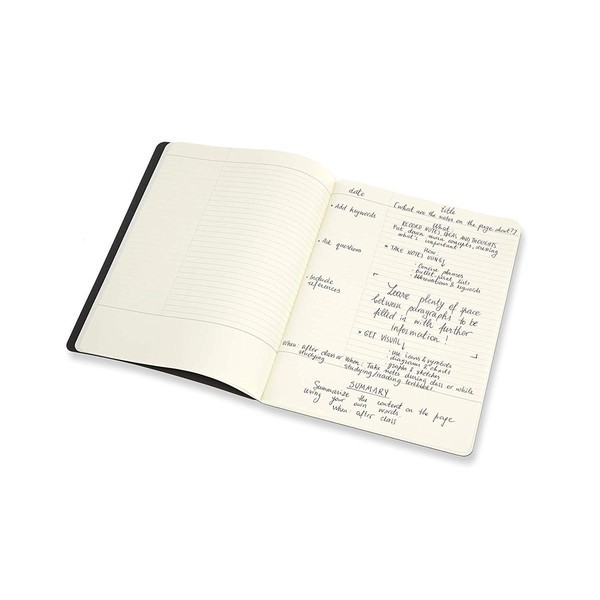 date
title
[what are the notes on the page about?]
• Add keywords
What:
RECORD NOTES, IDEAS AND THOUGHTS
Put down main concepts, covering
what's important
How:
• Ask questions
* TAKE NOTES USING
• Concise phrases
• Bullet-point lists
• Abbreviations & keywords
• Include
references
Leave plenty of space
between paragraphs to be
filled in with further
information!
* GET VISUAL
• Use icons & symbols
diagrams & charts
graphs & sketches
When: after class or
studying
When: Take notes during class or while
studying/reading textbooks.
SUMMARY
Summarize the content on the page
using your own words
when after class